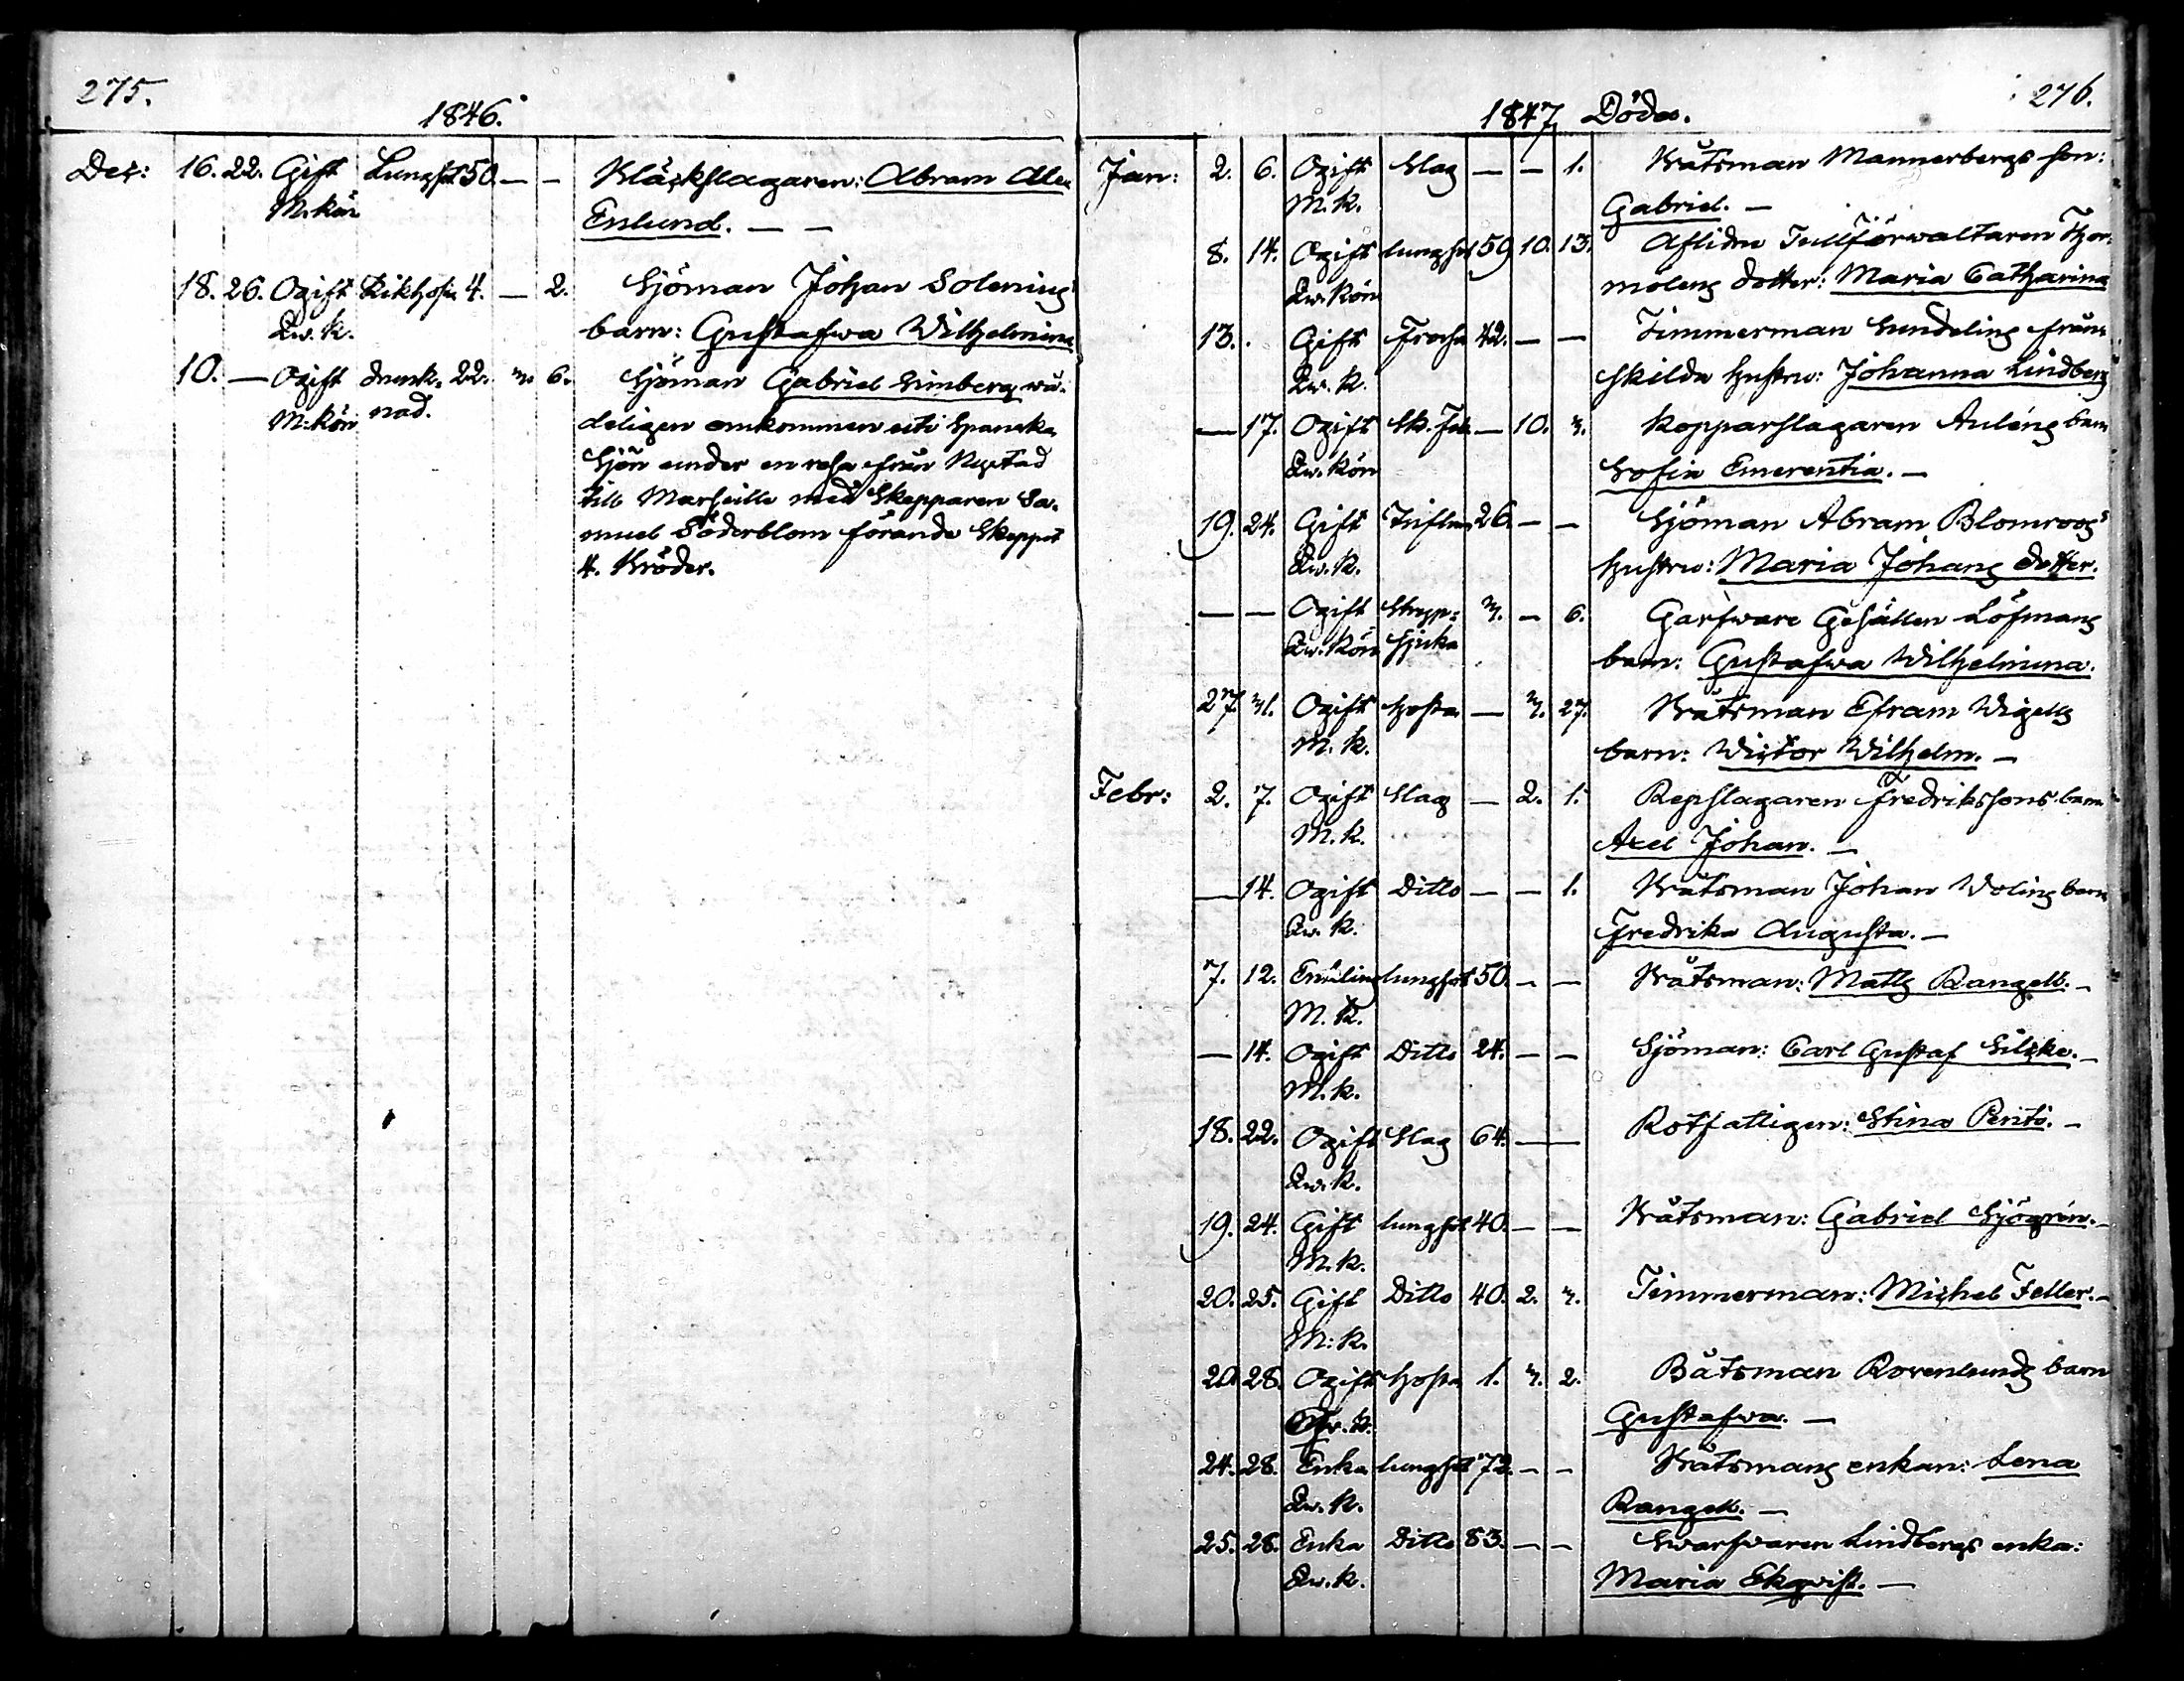 275.
1846.
Dec: 16. 22. Gift Lungsot 50. — — Bläckslagaren: Abram Alex
M:kön Enlund. — —
18. 26. Ogift Kikhosta 4. — 2. Sjöman Johan Solenius
Qw. k. barn: Gustafwa Wilhelmina
10. — Ogift drunk= 22. 3. 6. Sjöman Gabriel Limberg wå=
M:kön nad. deligen omkommen uti Spanska
Sjön under en resa från Nystad
till Marseille med Skepparen Sa=
muel Söderblom förande Skeppet
4. Bröder.
276.
1847 Döde.
Jan: 2. 6. Ogift Slag — — 1. Båtsman Mannerbergs son:
M. k. Gabriel. —
8. 14. Ogift lungsot 59 10. 13. Aflidne Tullförwaltaren Thor=
Qw. kön möleng dotter: Maria Catharina
13. . Gift Frossa 42. — — Timmerman Sundelins från=
Qw. k. skilda hustru: Johanna Lindberg
— 17. Ogift — 10. 3. Kopparslagaren Auléns barn
Qw. kön Sofia Emerentia. —
19. 24. Gift 26. — — Sjöman Abram Blomroos
Qw. k. hustru: Maria Johans dotter.
— — Ogift Stryp= 3. — 6. Garfware Gesällen Löfmans
Qw. kön sjuka barn: Gustafwa Wilhelmina.
27. 31. Ogift Hosta — 3. 27. Båtsman Efram Wigells
M. k. barn: Wictor Wilhelm. —
Febr: 2. 7. Ogift Slag — 2. 1. Repslagaren Fredrikssons barn
M. k. Axel Johan. —
— 14. Ogift Ditto — — 1. Båtsman Johan Wolins barn
Qw. k. Fredrika Augusta. —
7. 12. Enkling lungsot 50. — — Båtsman: Matts Rangell. —
M. k.
— 14. Ogift Ditto 24. — — Sjöman: Carl Gustaf Silcke. —
M. k.
18. 22. Ogift Slag 64. — Rotfattigen: Stina Pento. —
Qw. k.
19. 24. Gift lungsot 40. — — Båtsman: Gabriel Sjögrén. —
M. k.
20. 25. Gift Ditto 40. 2. 3. Timmerman: Michel Feller. —
M: k.
20. 28. Ogift Hosta 1. 3. 2. Båtsman Rorenlunds barn
Qw. k. Gustafwa. —
24. 28. Enka lungsot 72. — — Båtsmans enkan: Lena
Qw. k. Rangell. —
25. 28. Enka Ditto 83. — — Swarfwaren Lindbergs enka:
Qw. k. Maria Ekqvist. —